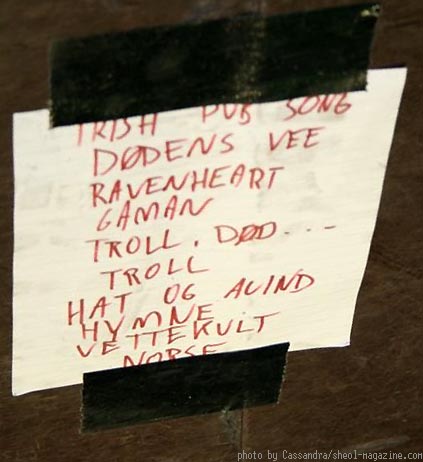 IRISH PUB SONG
DØDENS VEE
RAVENHEART
GAMAN
TROLL, DØD...
TROLL
HAT OG AVIND
HYMNE
VETTEKULT
NORSE
photo by Cassandra/sheol-magazine.com